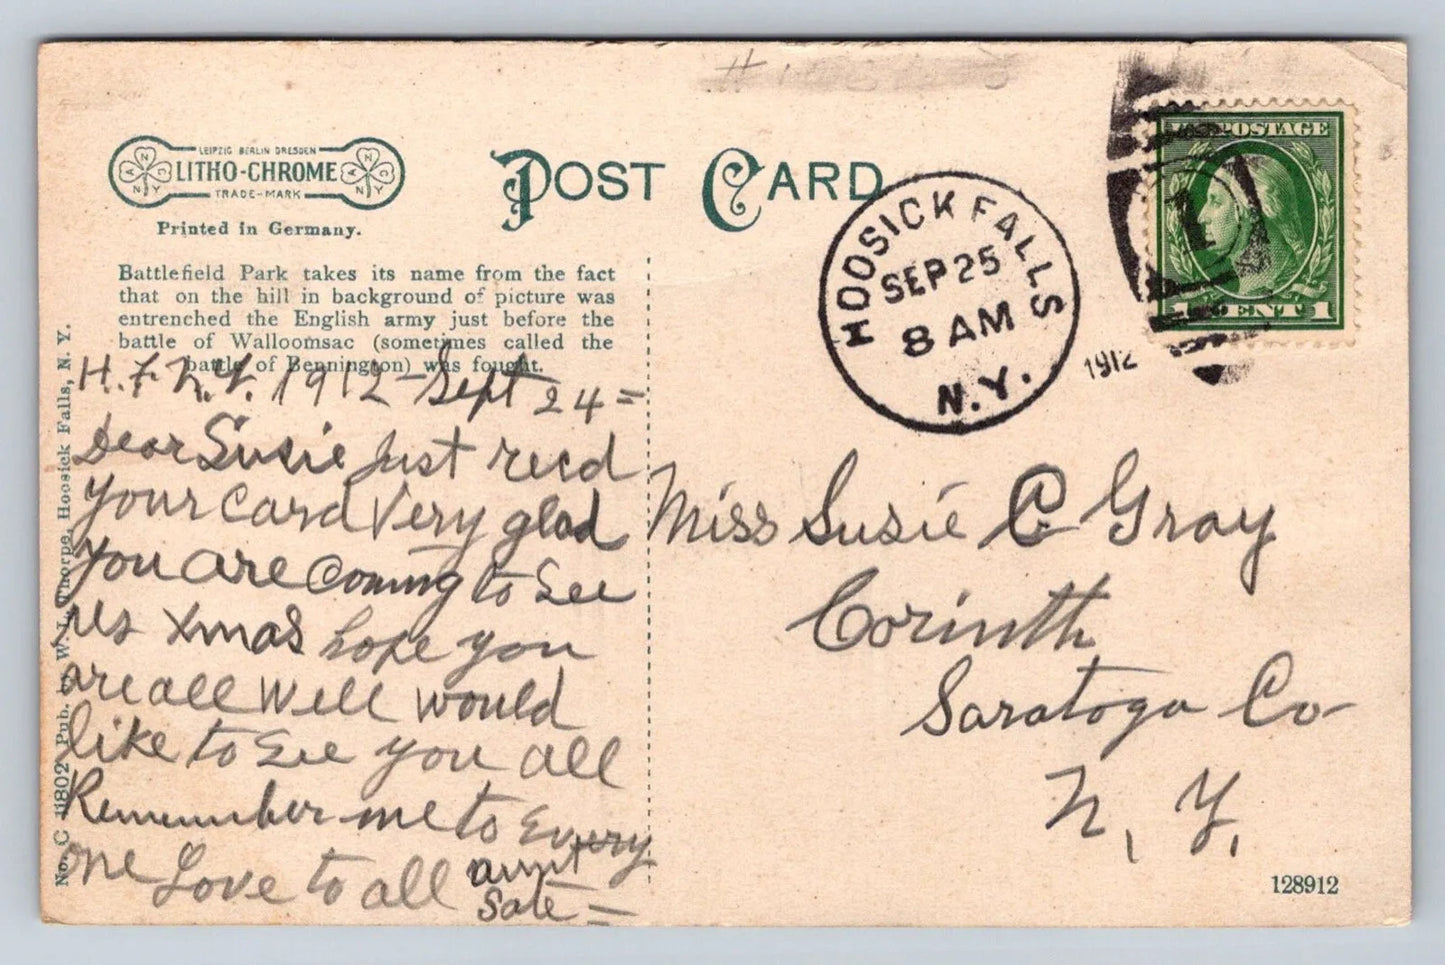 LEIPZIG BERLIN DRESDEN
LITHO-CHROME
TRADE-MARK
Printed in Germany.
POST CARD
Battlefield Park takes its name from the fact
that on the hill in background of picture was
entrenched the English army just before the
battle of Walloomsac (sometimes called the
battle of Bennington) was fought.
H. F. N. Y. 1912 - Sept 24 =
Dear Susie Just recd
your card Very glad
you are coming to see
us Xmas hope you
are all well would
like to see you all
Remember me to Every
one Love to all aunt
Sate =
No. C 11802 Pub. by W. J. Thorpe, Hoosick Falls, N. Y.
HOOSICK FALLS
SEP 25
8 AM
N.Y.
1912
1
U.S. POSTAGE
1 CENT 1
Miss Susie C Gray
Corinth
Saratoga Co-
N. Y.
128912